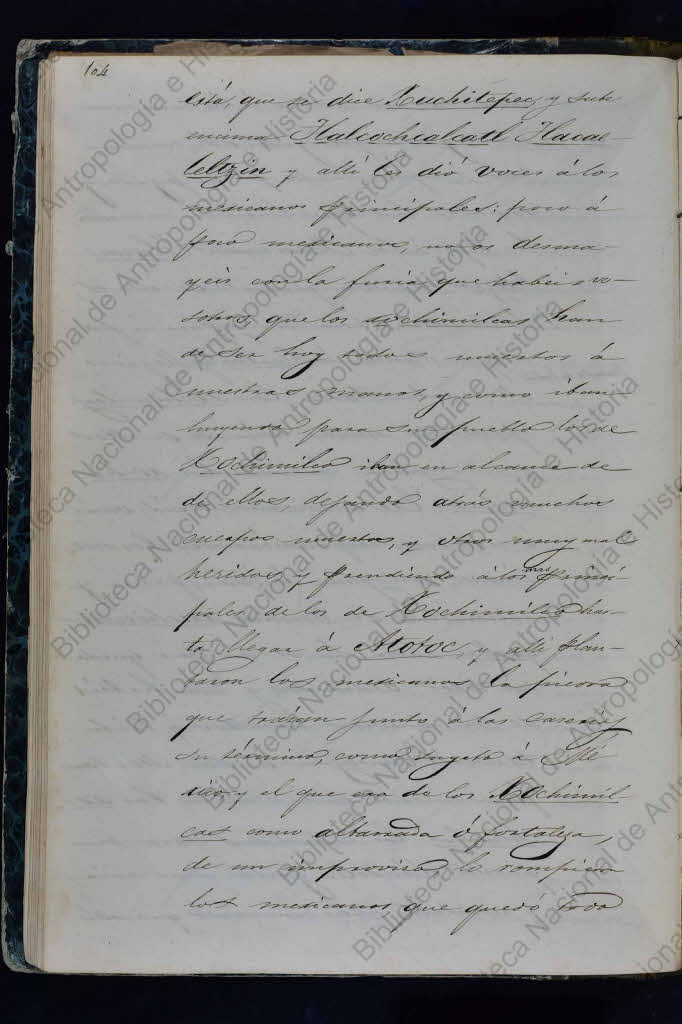 104
está, que se dice Xuchitepec, y sube
encima Tlalcochcalcatl Tlacae-
leltzin y allí les dió voces á los
mexicanos principales: poco á
poco mexicanos, no os desma-
yeis con la furia, que habeis vo-
sotros, que los xochimilcas han
de ser hoy todos muertos á
nuestras manos, y como iban
huyendo para su pueblo los de
Xochimilco iban en alcance de
de ellos, dejando atrás muchos
cuerpos muertos, y otros muy mal
heridos, y prendiendo á los mas princi-
pales de los de Xochimilco has-
ta llegar á Atotoc, y alli plan-
taron los mexicanos la
que traian junto á las caserias
su término, como sugeto á Mé-
xico, y el que era de los Xochimil-
cas como albarrada ó fortaleza,
de un improviso lo rompieron
los mexicanos que quedó todo
Biblioteca Nacional de Antropología e Historia